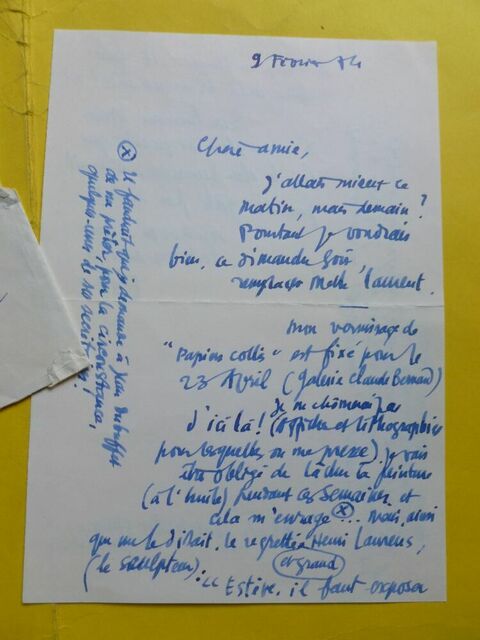 9 Février 74
Chère amie,
J'allais mieux ce
matin, mais demain?
Pourtant je voudrais
bien, ce dimanche soir
remplacer Melle Laurent.
mon vernissage de
"Papiers collés" est fixé pour le
23 Avril (Galerie Claude Bernard)
Je ne chômerai pas
d'ici là! (Affiche et lithographies
pour lesquelles on me presse) je vais
être obligé de lâcher la peinture
(à l'huile) pendant ces semaines et
cela m'enrage ⓧ... mais, ainsi
que me le disait, le regretté Henri Laurens,
(le sculpteur) et grand
: "Estève, il faut exposer
ⓧ Il faudrait que je demande à Jean Dubuffet
de me prêter, pour la circonstance,
quelques-uns de